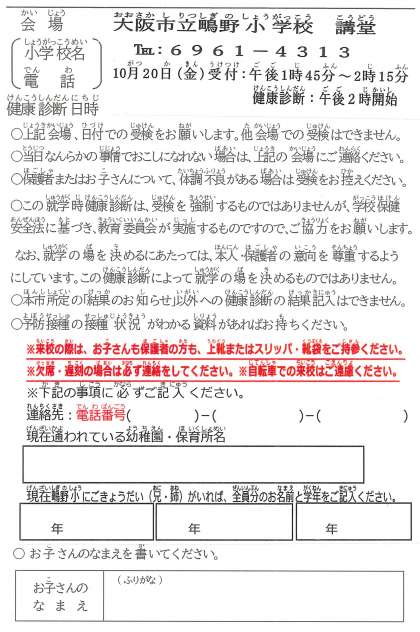 会場
(小学校名
電話)
健康診断日時
大阪市立鴫野小学校 講堂
TEL:6961-4313
10月20日(金)受付:午後1時45分~2時15分
健康診断:午後2時開始
○上記会場、日付での受検をお願いします。他会場での受検はできません。
○当日なんらかの事情でおこしになれない場合は、上記の会場にご連絡ください。
○保護者またはお子さんについて、体調不良がある場合は受検をお控えください。
○この就学時健康診断は、受検を強制するものではありませんが、学校保健
安全法に基づき、教育委員会が実施するものですので、ご協力をお願いします。
なお、就学の場を決めるにあたっては、本人・保護者の意向を尊重するよう
にしています。この健康診断によって就学の場を決めるものではありません。
○本市所定の「結果のお知らせ」以外への健康診断の結果記入はできません。
○予防接種の接種状況がわかる資料があればお持ちください。
※来校の際は、お子さんも保護者の方も、上靴またはスリッパ・靴袋をご持参ください。
※欠席・遅刻の場合は必ず連絡をしてください。※自転車での来校はご遠慮ください。
※下記の事項に必ずご記入ください。
連絡先:電話番号( )-( )-( )
現在通われている幼稚園・保育所名
現在鴫野小にごきょうだい(兄・姉)がいれば、全員分のお名前と学年をご記入ください。
年 年 年
○ お子さんのなまえを書いてください。
お子さんの
なまえ
(ふりがな)